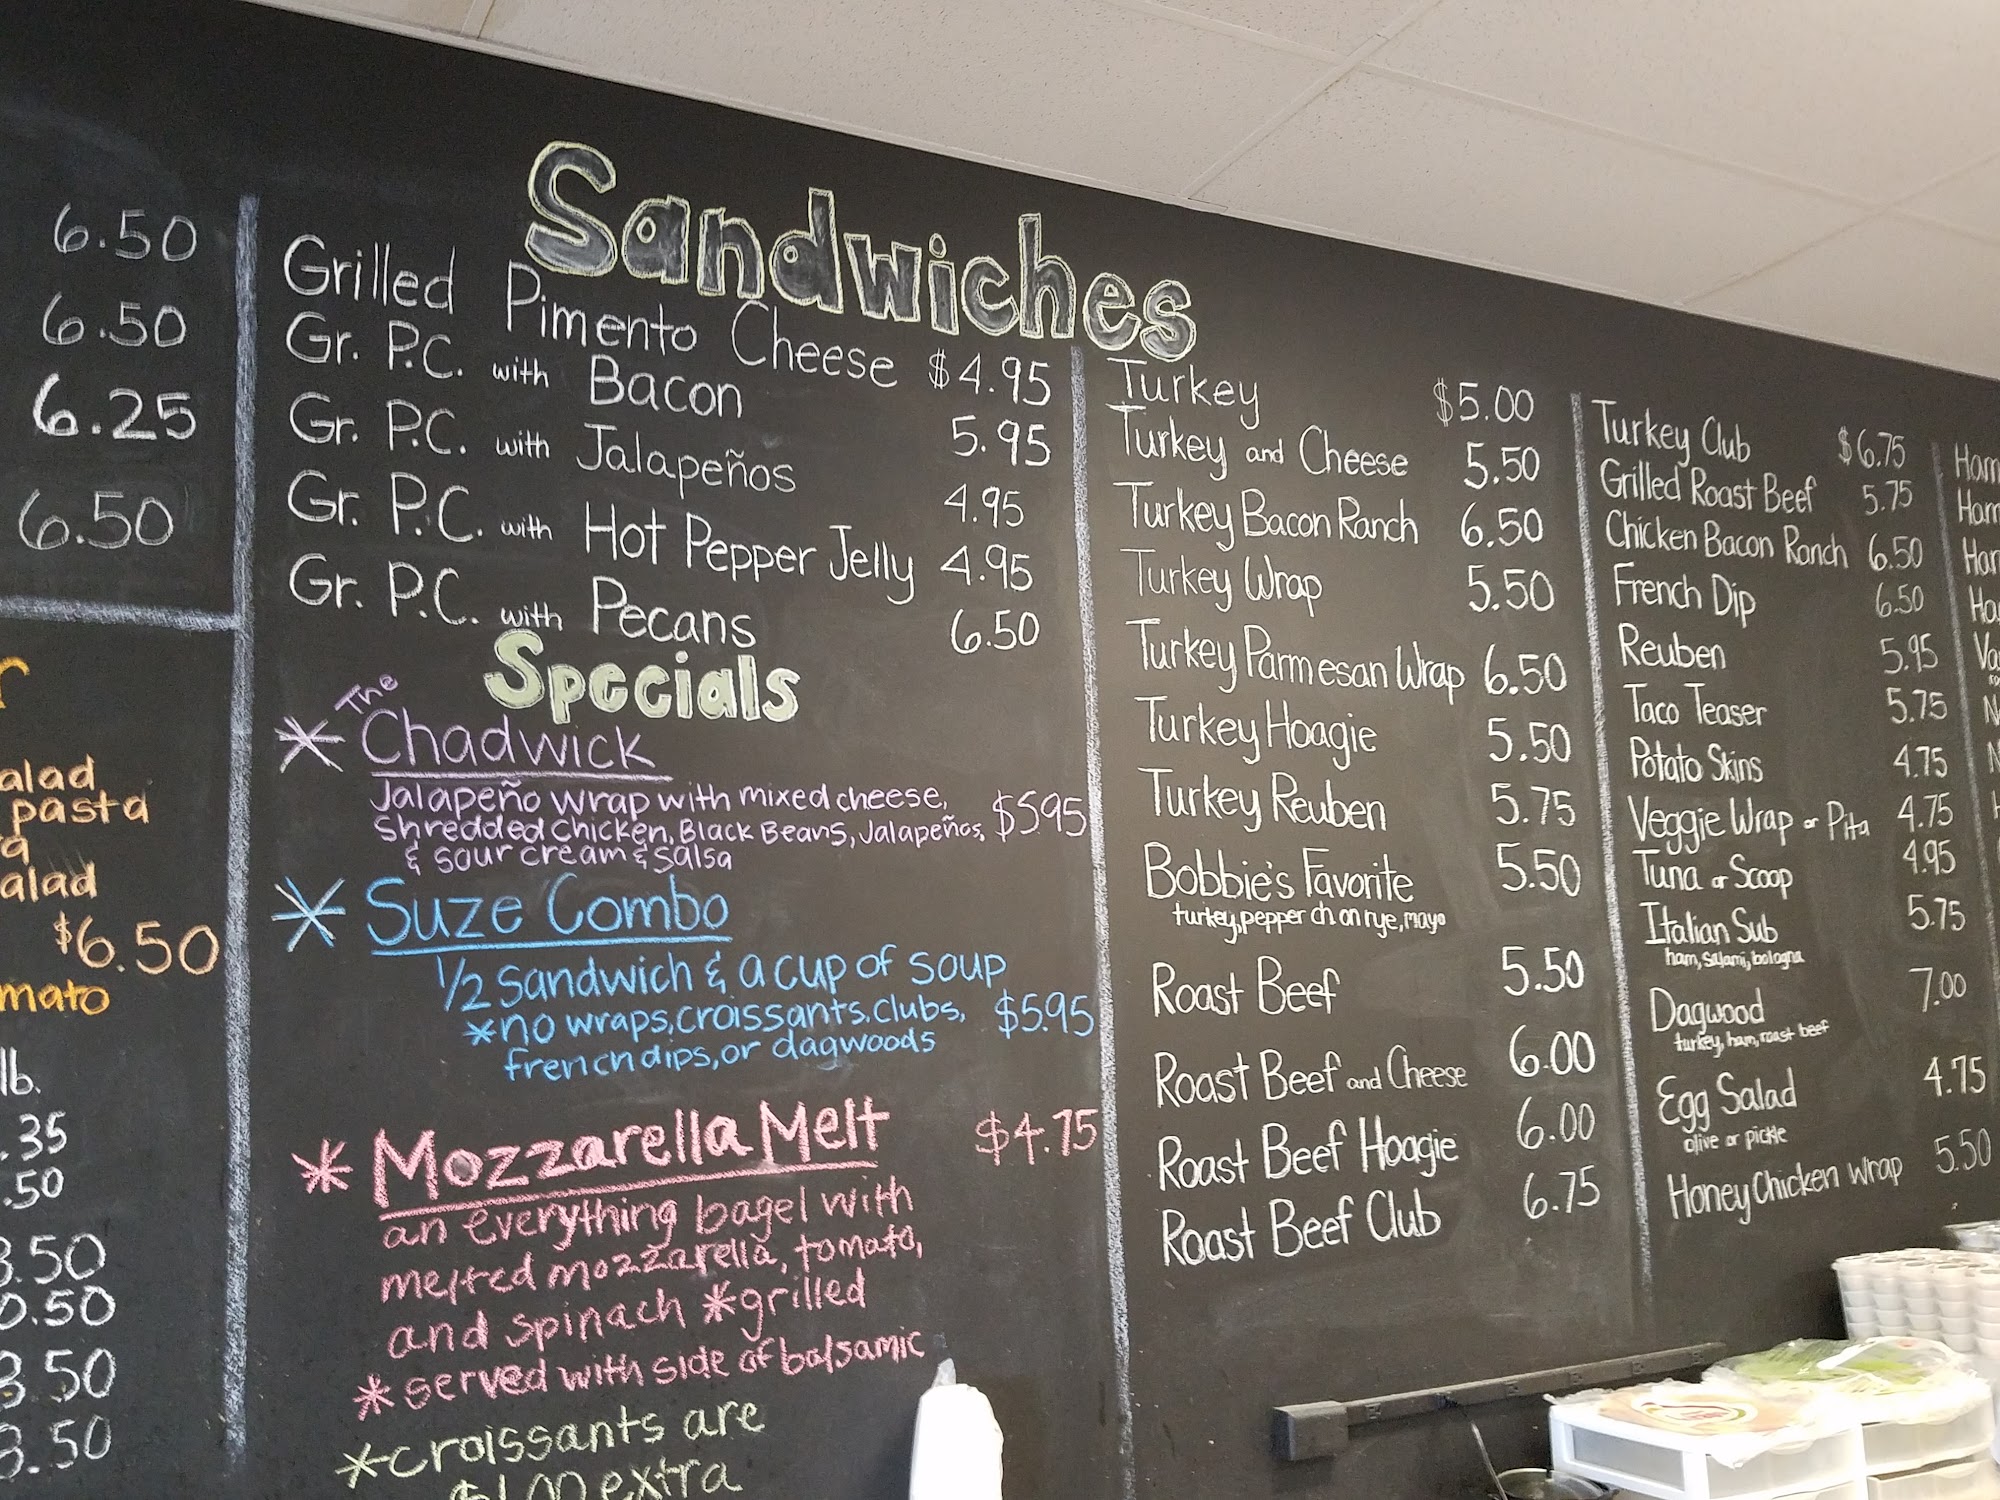 6.50
6.50
6.25
6.50
alad
pasta
alad
$6.50
mato
lb.
.35
.50
.50
.50
.50
.50
Sandwiches
Grilled Pimento Cheese $4.95
Gr. P.C. with Bacon 5.95
Gr. P.C. with Jalapeños 4.95
Gr. P.C. with Hot Pepper Jelly 4.95
Gr. P.C. with Pecans 6.50
Specials
* The Chadwick
Jalapeño wrap with mixed cheese,
shredded chicken, Black Beans, Jalapeños, $5.95
& sour cream & salsa
* Suze Combo
1/2 sandwich & a cup of soup
*no wraps, croissants, clubs, $5.95
french dips, or dagwoods
* Mozzarella Melt $4.75
an everything bagel with
melted mozzarella, tomato,
and spinach *grilled
*served with side of balsamic
*croissants are
$1.00 extra
Turkey $5.00
Turkey and Cheese 5.50
Turkey Bacon Ranch 6.50
Turkey Wrap 5.50
Turkey Parmesan Wrap 6.50
Turkey Hoagie 5.50
Turkey Reuben 5.75
Bobbie's Favorite 5.50
turkey, pepper ch on rye, mayo
Roast Beef 5.50
Roast Beef and Cheese 6.00
Roast Beef Hoagie 6.00
Roast Beef Club 6.75
Turkey Club $6.75
Grilled Roast Beef 5.75
Chicken Bacon Ranch 6.50
French Dip 6.50
Reuben 5.95
Taco Teaser 5.75
Potato Skins 4.75
Veggie Wrap or Pita 4.75
Tuna or Scoop 4.95
Italian Sub 5.75
ham, salami, bologna
Dagwood 7.00
turkey, ham, roast beef
Egg Salad 4.75
olive or pickle
Honey Chicken Wrap 5.50
Ham
Ham
Ham